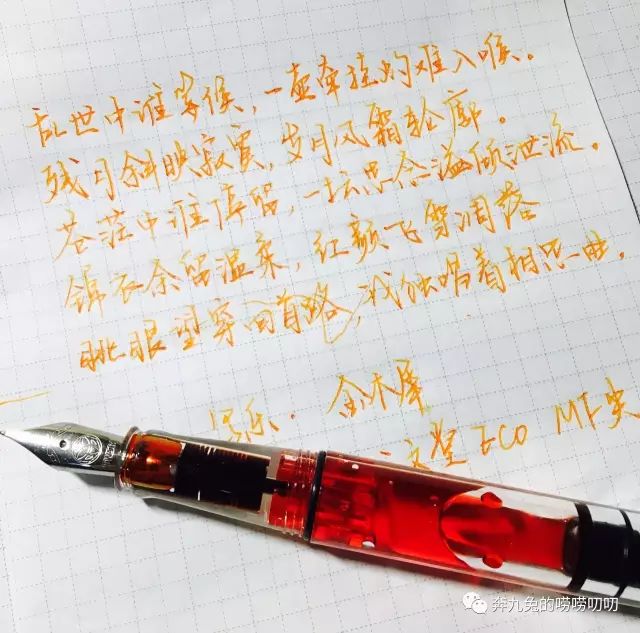 乱世中谁等候，一壶牵挂灼难入喉。
残月斜映寂寞，岁月风霜轮廓。
苍茫中谁停留，一坛思念溢倾泄流。
锦衣余留温柔，红颜飞絮凋落
眺眼望穿回首路，我独唱着相思曲。
写乐．金木犀
一文堂 ECO MF尖
奔九兔的唠唠叨叨